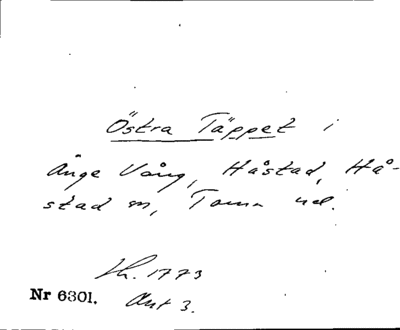 Östra Täppet i
Ånge Vång, Håstad, Hå-
stad sn, Torna hd.
Lh. 1773
Nr 6301. Akt 3.